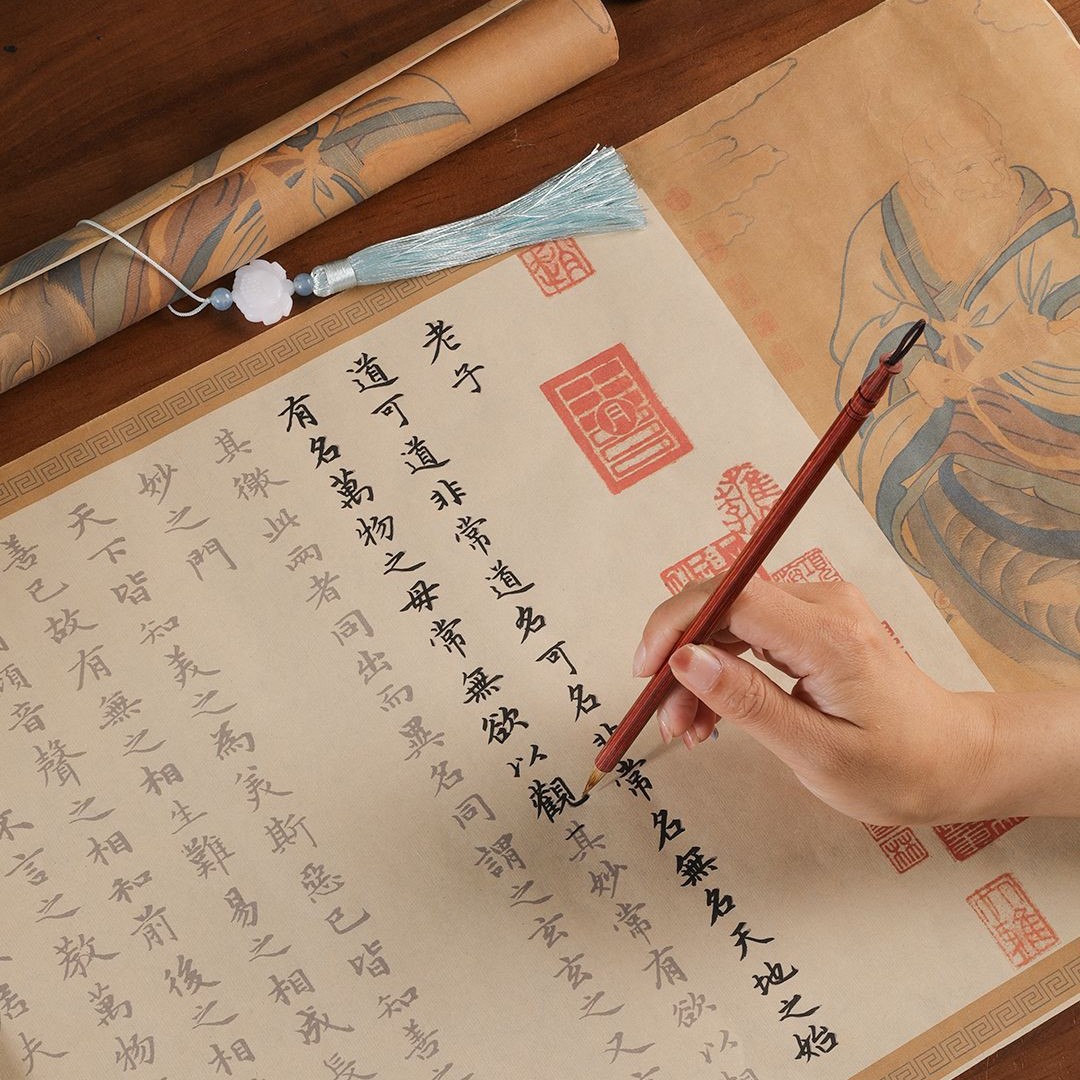 老子
道可道非常道名可名非常名無名天地之始
有名萬物之母常無欲以觀其妙常有欲以觀
其徼此兩者同出而異名同謂之玄玄之又玄
妙之門
天下皆知美之為美斯惡已皆知善之
善已故有無之相生難易之相成長
傾音聲之相和前後之相
不言之教萬物
居夫